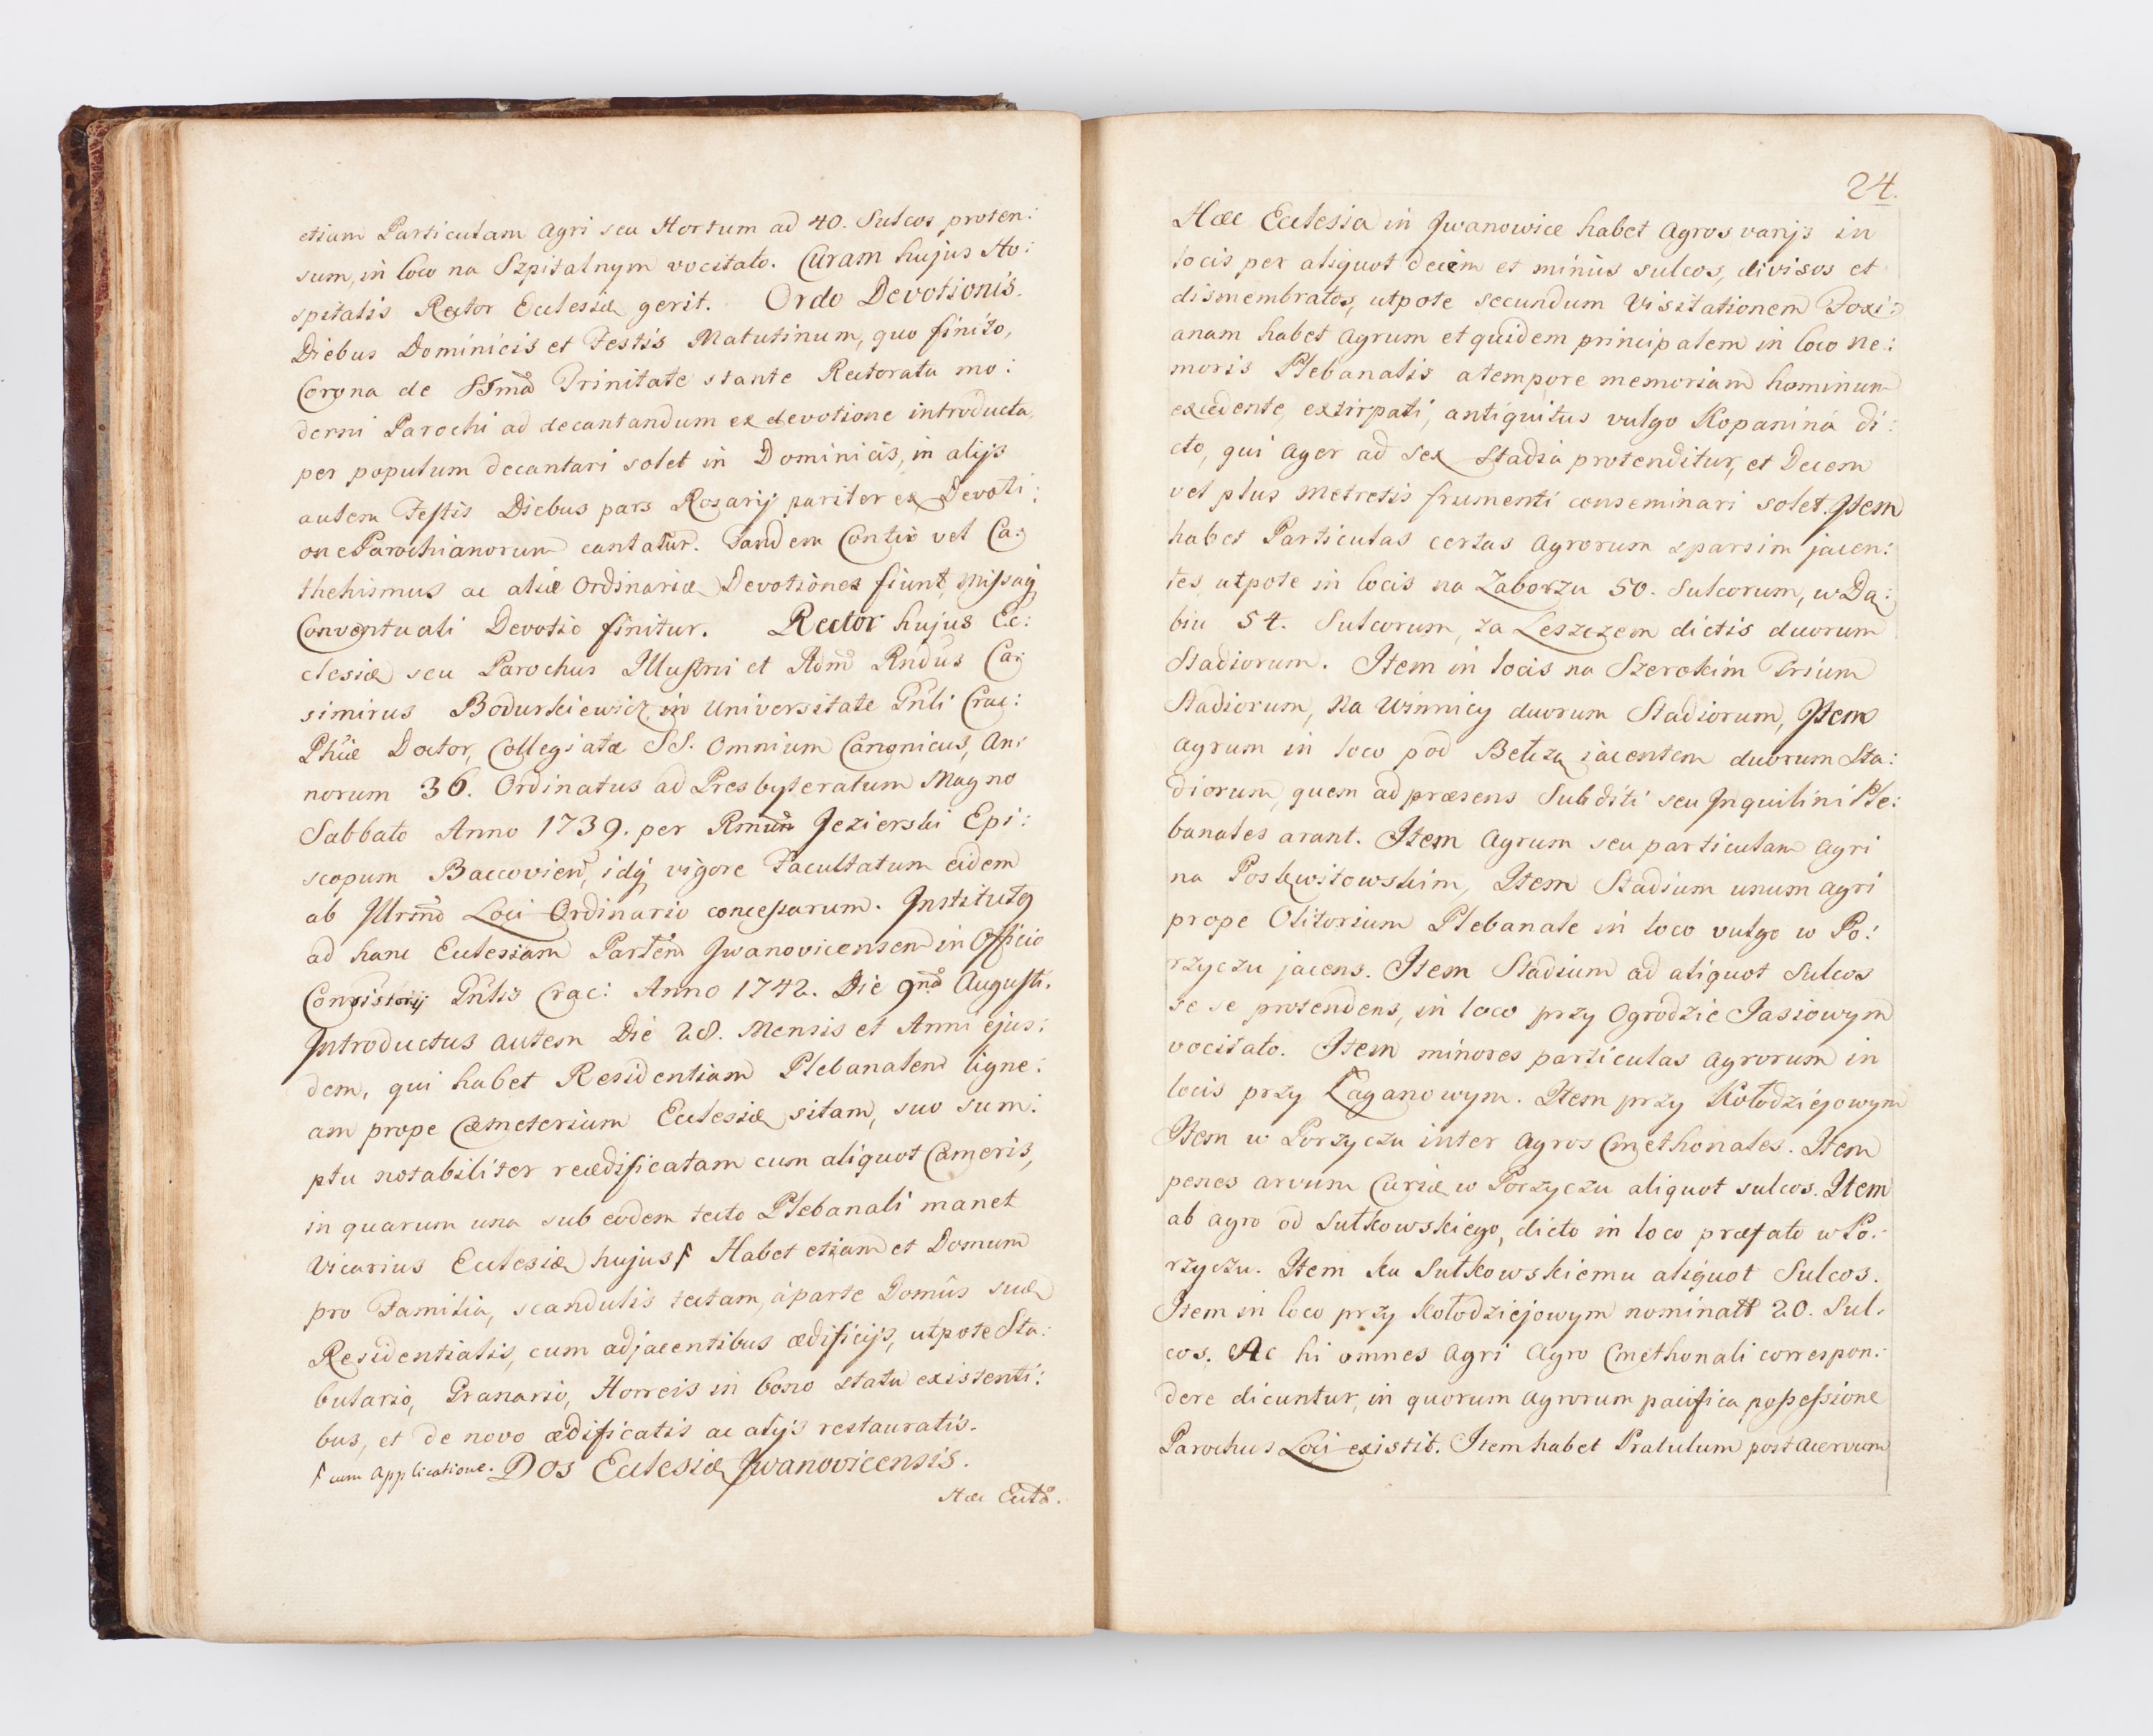 etiam Particulam Agri seu Hortum ad 40. Sulcos proten:
sum, in loco na Szpitalnym vocitato. Curam hujus Ho:
spitalis Rector Ecclesiæ gerit. Ordo Devotionis.
Diebus Dominicis et Festis Matutinum, quo finito,
Corona de SSma Trinitate stante Rectoratu mo:
derni Parochi ad decantandum ex devotione introducta,
per populum decantari solet in Dominicis, in alijs
autem Festis Diebus pars Rosarij pariter ex Devoti:
one Parochianorum cantatur. Tandem Contio vel Ca:
thehismus ac aliæ Ordinariæ Devotiones fiunt, Missaq
Conventuali Devotio finitur. Rector hujus Ec:
clesiæ seu Parochus Illustris et Adm Rndus Ca:
simirus Bodurkiewicz, in Universitate Gnli Crac:
Phiæ Doctor, Collegiatæ SS. Omnium Canonicus, An:
norum 36. Ordinatus ad Presbyteratum Magno
Sabbato Anno 1739. per Rmum Jezierski Epi:
scopum Baccovien, idq vigore Facultatum eidem
ab Illrmo Loci Ordinario concessarum. Institutq
ad hanc Ecclesiam Partem Jwanovicensem in Officio
Consistorij Gnlis Crac: Anno 1742. Die 9na Augusti.
Introductus autem Die 28. Mensis et Anni ejus:
dem, qui habet Residentiam Plebanalem ligne:
am prope Cæmeterium Ecclesiæ sitam, suo sum:
ptu notabiliter reædificatam cum aliquot Cameris,
in quarum una sub eodem tecto Plebanali manet
Vicarius Ecclesiæ hujus Habet etiam et Domum
pro Familia, scandulis tectam, à parte Domûs suæ
Residentialis, cum adjacentibus ædificijs, utpote Sta:
bulario, Granario, Horreis in bono statu existenti:
bus, et de novo ædificatis ac alijs restauratis.
cum Applicatione. Dos Ecclesiæ Jwanovicensis.
Hæc Eccla.
24.
Hæc Ecclesia in Jwanowice habet Agros varijs in
locis per aliquot decem et minus sulcos, divisos et
dismembratos, utpote secundum Visitationem Foxi:
anam habet Agrum et quidem principalem in loco Ne:
moris Plebanalis a tempore memoriam hominum
excedente, extirpati, antiquitus vulgo Kopanina di:
cto, qui Ager ad Sex Stadia protenditur, et Decem
vel plus Metretis frumenti conseminari solet. Item
habet Particulas certas Agrorum sparsim jacen:
tes, utpote in locis na Zaborzu 50. Sulcorum, w Dą:
biu 54. Sulcorum, za Leszczem dictis duorum
Stadiorum. Item in locis na Szerokim Trium
Stadiorum, Na Winnicy duorum Stadiorum, Item
Agrum in loco pod Betczą jacentem duorum Sta:
diorum, quem ad præsens Subditi seu Inquilini Ple:
banales arant. Item Agrum seu particulam Agri
na Poskwitowskim, Item Stadium unum agri
prope Olitorium Plebanale in loco vulgo w Po:
rzyczu jacens. Item Stadium ad aliquot Sulcos
se se protendens, in loco przy Ogrodzie Jasiowym
vocitato. Item minores particulas Agrorum in
locis przy Łaganowym. Item przy Kołodziejowym
Item w Porzyczu inter Agros Cmethonales. Item
penes arvum Curiæ w Porzyczu aliquot sulcos. Item
ab agro od Sułkowskiego, dicto in loco præfato w Po:
rzyczu. Item Ku Sułkowskiemu aliquot Sulcos.
Item in loco przy Kołodziejowym 20. Sul:
cos. Ac hi omnes Agri Agro Cmethonali correspon:
dere dicuntur, in quorum Agrorum pacifica possessione
Parochus Loci existit. Item habet Pratulum post Acervum